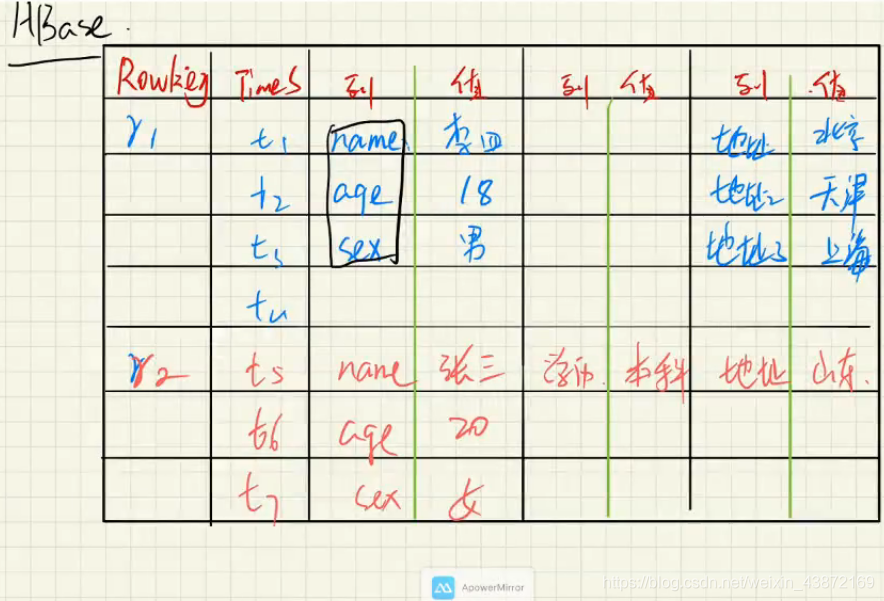 HBase.
Rowkey TimeS 列 值 列 值 列 值
r1 t1 name 李四 地址 北京
t2 age 18 地址2 天津
t3 sex 男 地址3 上海
t4
r2 t5 name 张三 学历 本科 地址 山东.
t6 age 20
t7 sex 女
ApowerMirror
https://blog.csdn.net/weixin_43872169